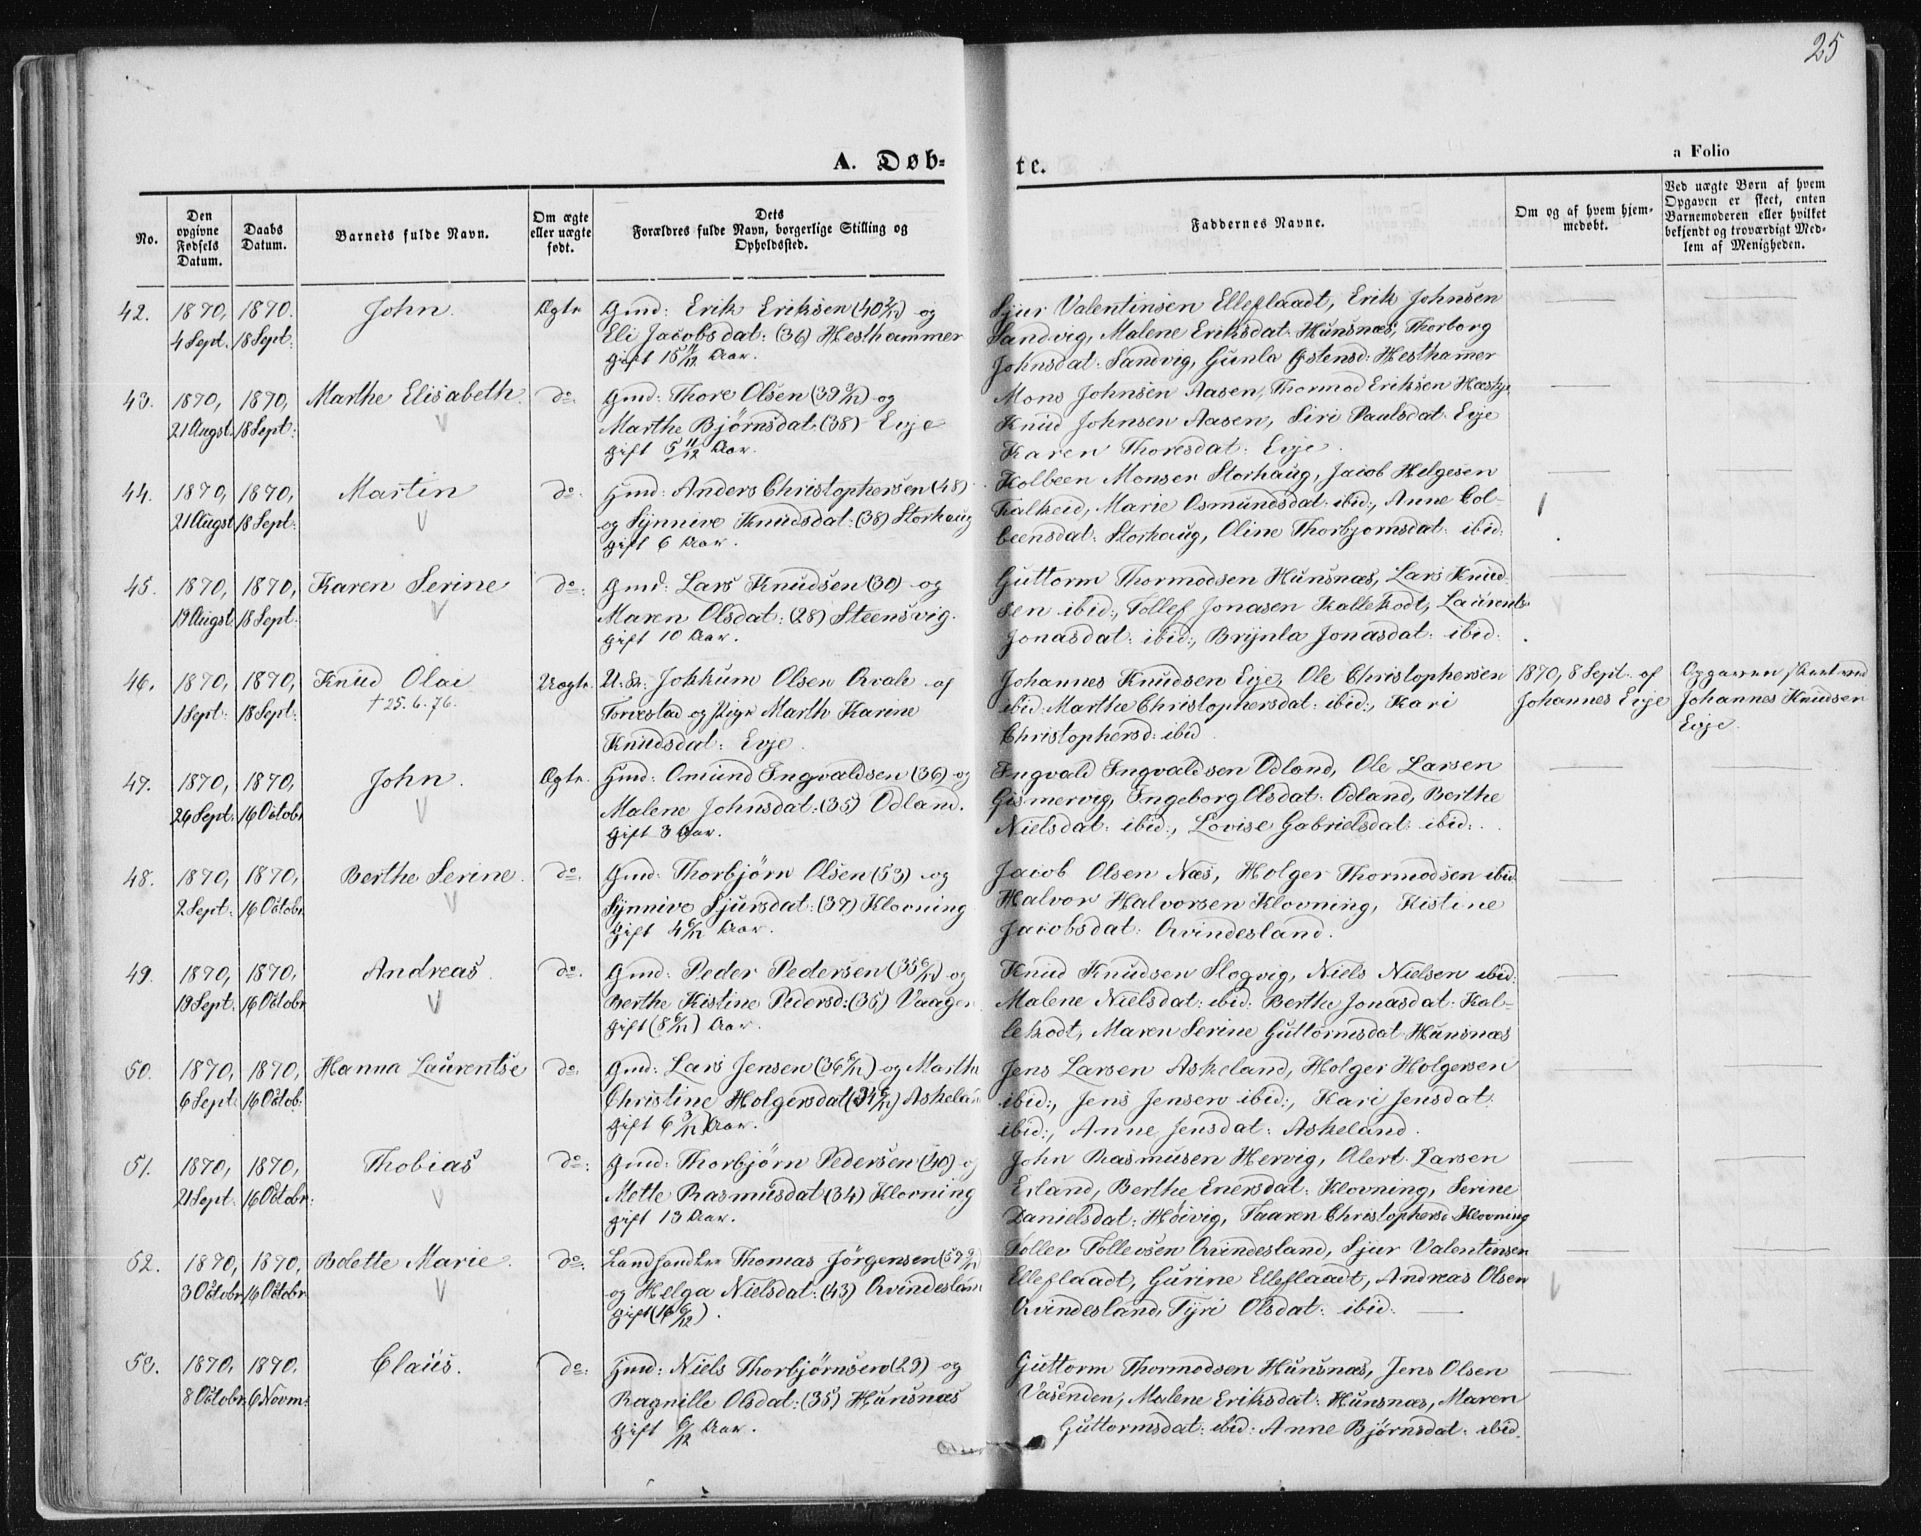 25
A. Døb-
te.
a Folio
No.
Den opgivne Fødsels Datum.
Daabs Datum.
Barnets fulde Navn.
Om ægte eller uægte født.
Dets Forældres fulde Navn, borgerlige Stilling og Opholdssted.
Faddernes Navne.
Om og af hvem hjemmedøbt.
Ved uægte Børn af hvem Opgaven er skeet, enten Barnemoderen eller hvilket bekjendt og troværdigt Medlem af Menigheden.
42. 1870, 1870. John. Ægte Gmd: Erik Eriksen (40 2/12) og
4 Sept. 18 Sept: Eli Jacobsdat: (36) Hesthammer
gift 15 11/12 Aar.
Sjur Valentinsen Elleflaadt, Erik Johnsen
Sandvig, Malene Eriksdat: Hunsnæs, Thorborg
Johnsdat: Sandvig, Gunla Østensd: Hesthamer
43. 1870, 1870, Marthe Elisabeth. do. Gmd: Thore Olsen (39 9/12) og
21 Augst. 18 Sept: Marthe Bjørnsdat. (38) Evje
gift 5 11/12 Aar.
Mons Johnsen Aasen, Thormod Eriksen
Knud Johnsen Aasen, Siri Paulsdat. Evje
Karen Thoresdat: Evje.
44. 1870, 1870, Martin do. Gmd: Anders Christophersen (48)
21 Augst 18 Sept: og Synnive Knudsdat: (38) Storhaug
gift 6 Aar.
Kolbeen Monsen Storhaug, Jacob Helgesen
Falkeid, Marie Osmundsdat: ibid:, Anne Col-
beensdat: Storhaug, Oline Thorbjornsdat: ibid:
45. 1870, 1870, Karen Serine do: Gmd: Lars Knudsen (30) og
19 Augst 18 Sept: Maren Olsdat: (28) Steensvig.
gift 10 Aar.
Guttorm Thormodsen Hunsnæs, Lars Knud-
sen ibid:, Tollef Jonasen Kallekodt, Laurents
Jonasdat: ibid:, Brynla Jonasdat: ibid:
46. 1870, 1870, Knud Olai Uægte. U.K: Jokkum Olsen Qvale af
1 Sept: 18 Sept: † 25.6.76. Torvestad og Pige Marth Karine
Knudsdat: Evje.
Johannes Knudsen Evje, Ole Christophersen
ibid: Marthe Christophersdat: ibid:, Kari
Christophersd: ibid.
1870, 8 Sept. af
Johannes Evje
Opgaven skeet ved
Johannes Knudsen
Evje.
47. 1870, 1870, John. Ægte. Gmd: Omund Ingvaldsen (36) og
26 Sept: 16 Octobr Malene Johnsdat: (35) Odland.
gift 3 Aar.
Ingvald Ingvaldsen Odland, Ole Larsen
Gismervig, Ingeborg Olsdat: Odland, Berthe
Nielsdat: ibid:, Lovise Gabrielsdat: ibid:
48. 1870, 1870, Berthe Serine. do. Gmd: Thorbjørn Olsen (53) og
2 Sept: 16 Octobr. Synnive Sjursdat: (37) Klovning
gift 4 6/12 Aar.
Jacob Olsen Næs, Holger Thormodsen ibid.
Halvor Halvorsen Klovning, Kistine
Jacobsdat: Qvindesland.
49. 1870, 1870, Andreas. do. Gmd: Peder Pedersen (35 6/12) og
19 Sept: 16 Octobr Berthe Kistine Pedersd: (35) Vaagen
gift (8 6/12) Aar.
Knud Knudsen Slogvig, Niels Nielsen ibid:
Malene Nielsdat: ibid: Berthe Jonasdat. Kal-
lekodt, Maren Serine Guttormsdat Hunsnæs
50. 1870, 1870, Hanna Laurentse do: Gmd: Lars Jensen (36 6/12) og Marthe
6 Sept: 16 Octob: Christine Holgersdat (34 6/12) Askelan
gift 6 3/12 Aar.
Jens Larsen Askeland, Holger Holgersen
ibid:, Jens Jensen ibid:, Kari Jensdat.
ibid:, Anne Jensdat: Askeland.
51. 1870, 1870, Thobias do: Gmd: Thorbjørn Pedersen (40) og
21 Sept: 16 Octobr: Mette Rasmusdat (34) Klovning
gift 13 Aar.
John Rasmusen Hervig, Olert Larsen
Erland, Berthe Enersdat: Klovning, Serine
Danielsdat: Høivig, Taaren Christophersd Klovning
52. 1870, 1870, Bolette Marie. do: Landhandler Thomas Jørgensen (57 9/12)
3 Octobr. 16 Octobr. og Helga Nielsdat: (43) Qvindeslan
gift (16 6/12).
Tollev Tollevsen Qvindesland, Sjur Valentinsen
Elleflaadt, Gurine Elleflaadt, Andreas Olsen
Qvindesland, Tyri Olsdat: ibid:
53. 1870, 1870. Claus. do: Gmd: Niels Thorbjørnsen (29) og
8 Octobr. 6 Novm: Ragnille Olsdat: (35) Hunsnæs
gift 6/12 Aar.
Guttorm Thormodsen Hunsnæs, Jens Olsen
Vasenden, Malene Eriksdat: Hunsnæs, Maren
Guttormsdat: ibid: Anne Bjørnsdat: ibid.